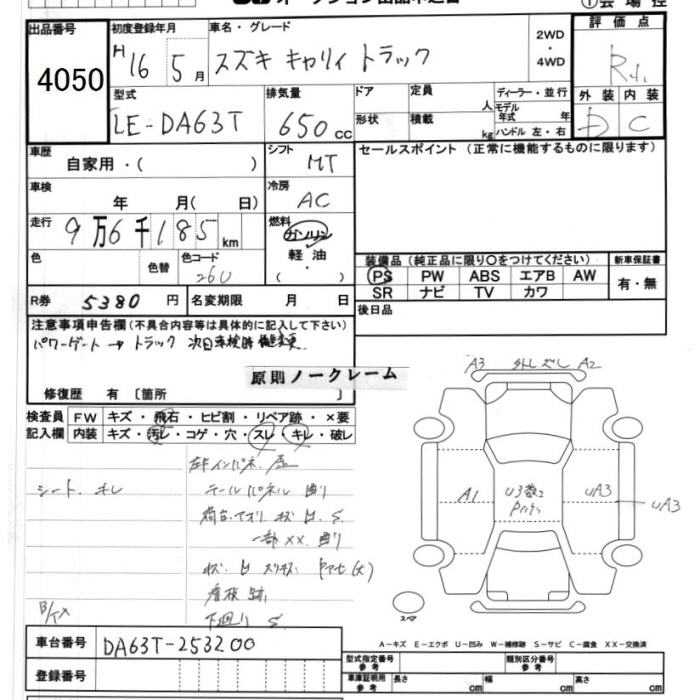 出品番号
4050
初度登録年月
H 16 5月
車名・グレード
スズキ キャリィ トラック
2WD
・
4WD
評価点
型式
LE-DA63T
排気量
650cc
ドア
形状
定員
人
積載
kg
ディーラー・並行
モデル年式 年
ハンドル 左・右
外装
D
内装
C
車歴
自家用・( )
シフト
MT
セールスポイント (正常に機能するものに限ります)
車検
年 月( 日)
冷房
AC
走行
9万6千185km
燃料
ガソリン
軽油
( )
色
色替
色コード
26U
装備品 (純正品に限り〇をつけてください)
PS PW ABS エアB AW
SR ナビ TV カワ
新車保証書
有・無
R券 5380円
名変期限 月 日
後日品
注意事項申告欄(不具合内容等は具体的に記入して下さい)
パワーゲート → トラック 次回車検時
原則ノークレーム
修復歴 有〔箇所 〕
検査員記入欄
FW キズ・飛石・ヒビ割・リペア跡・×要
内装 キズ・汚レ・コゲ・穴・スレ・キレ・破レ
シート キレ
テールパネル 曲り
一部××. 曲り
下廻り S
A3 外しズミ A2
A1
U3数2
UA3
UA3
スペア
A-キズ E-エクボ U-凹み W-補修跡 S-サビ C-腐食 XX-交換済
車台番号
DA63T-253200
登録番号
型式指定番号
参考
類別区分番号
参考
車庫証明用
参考
長さ cm
幅 cm
高さ cm